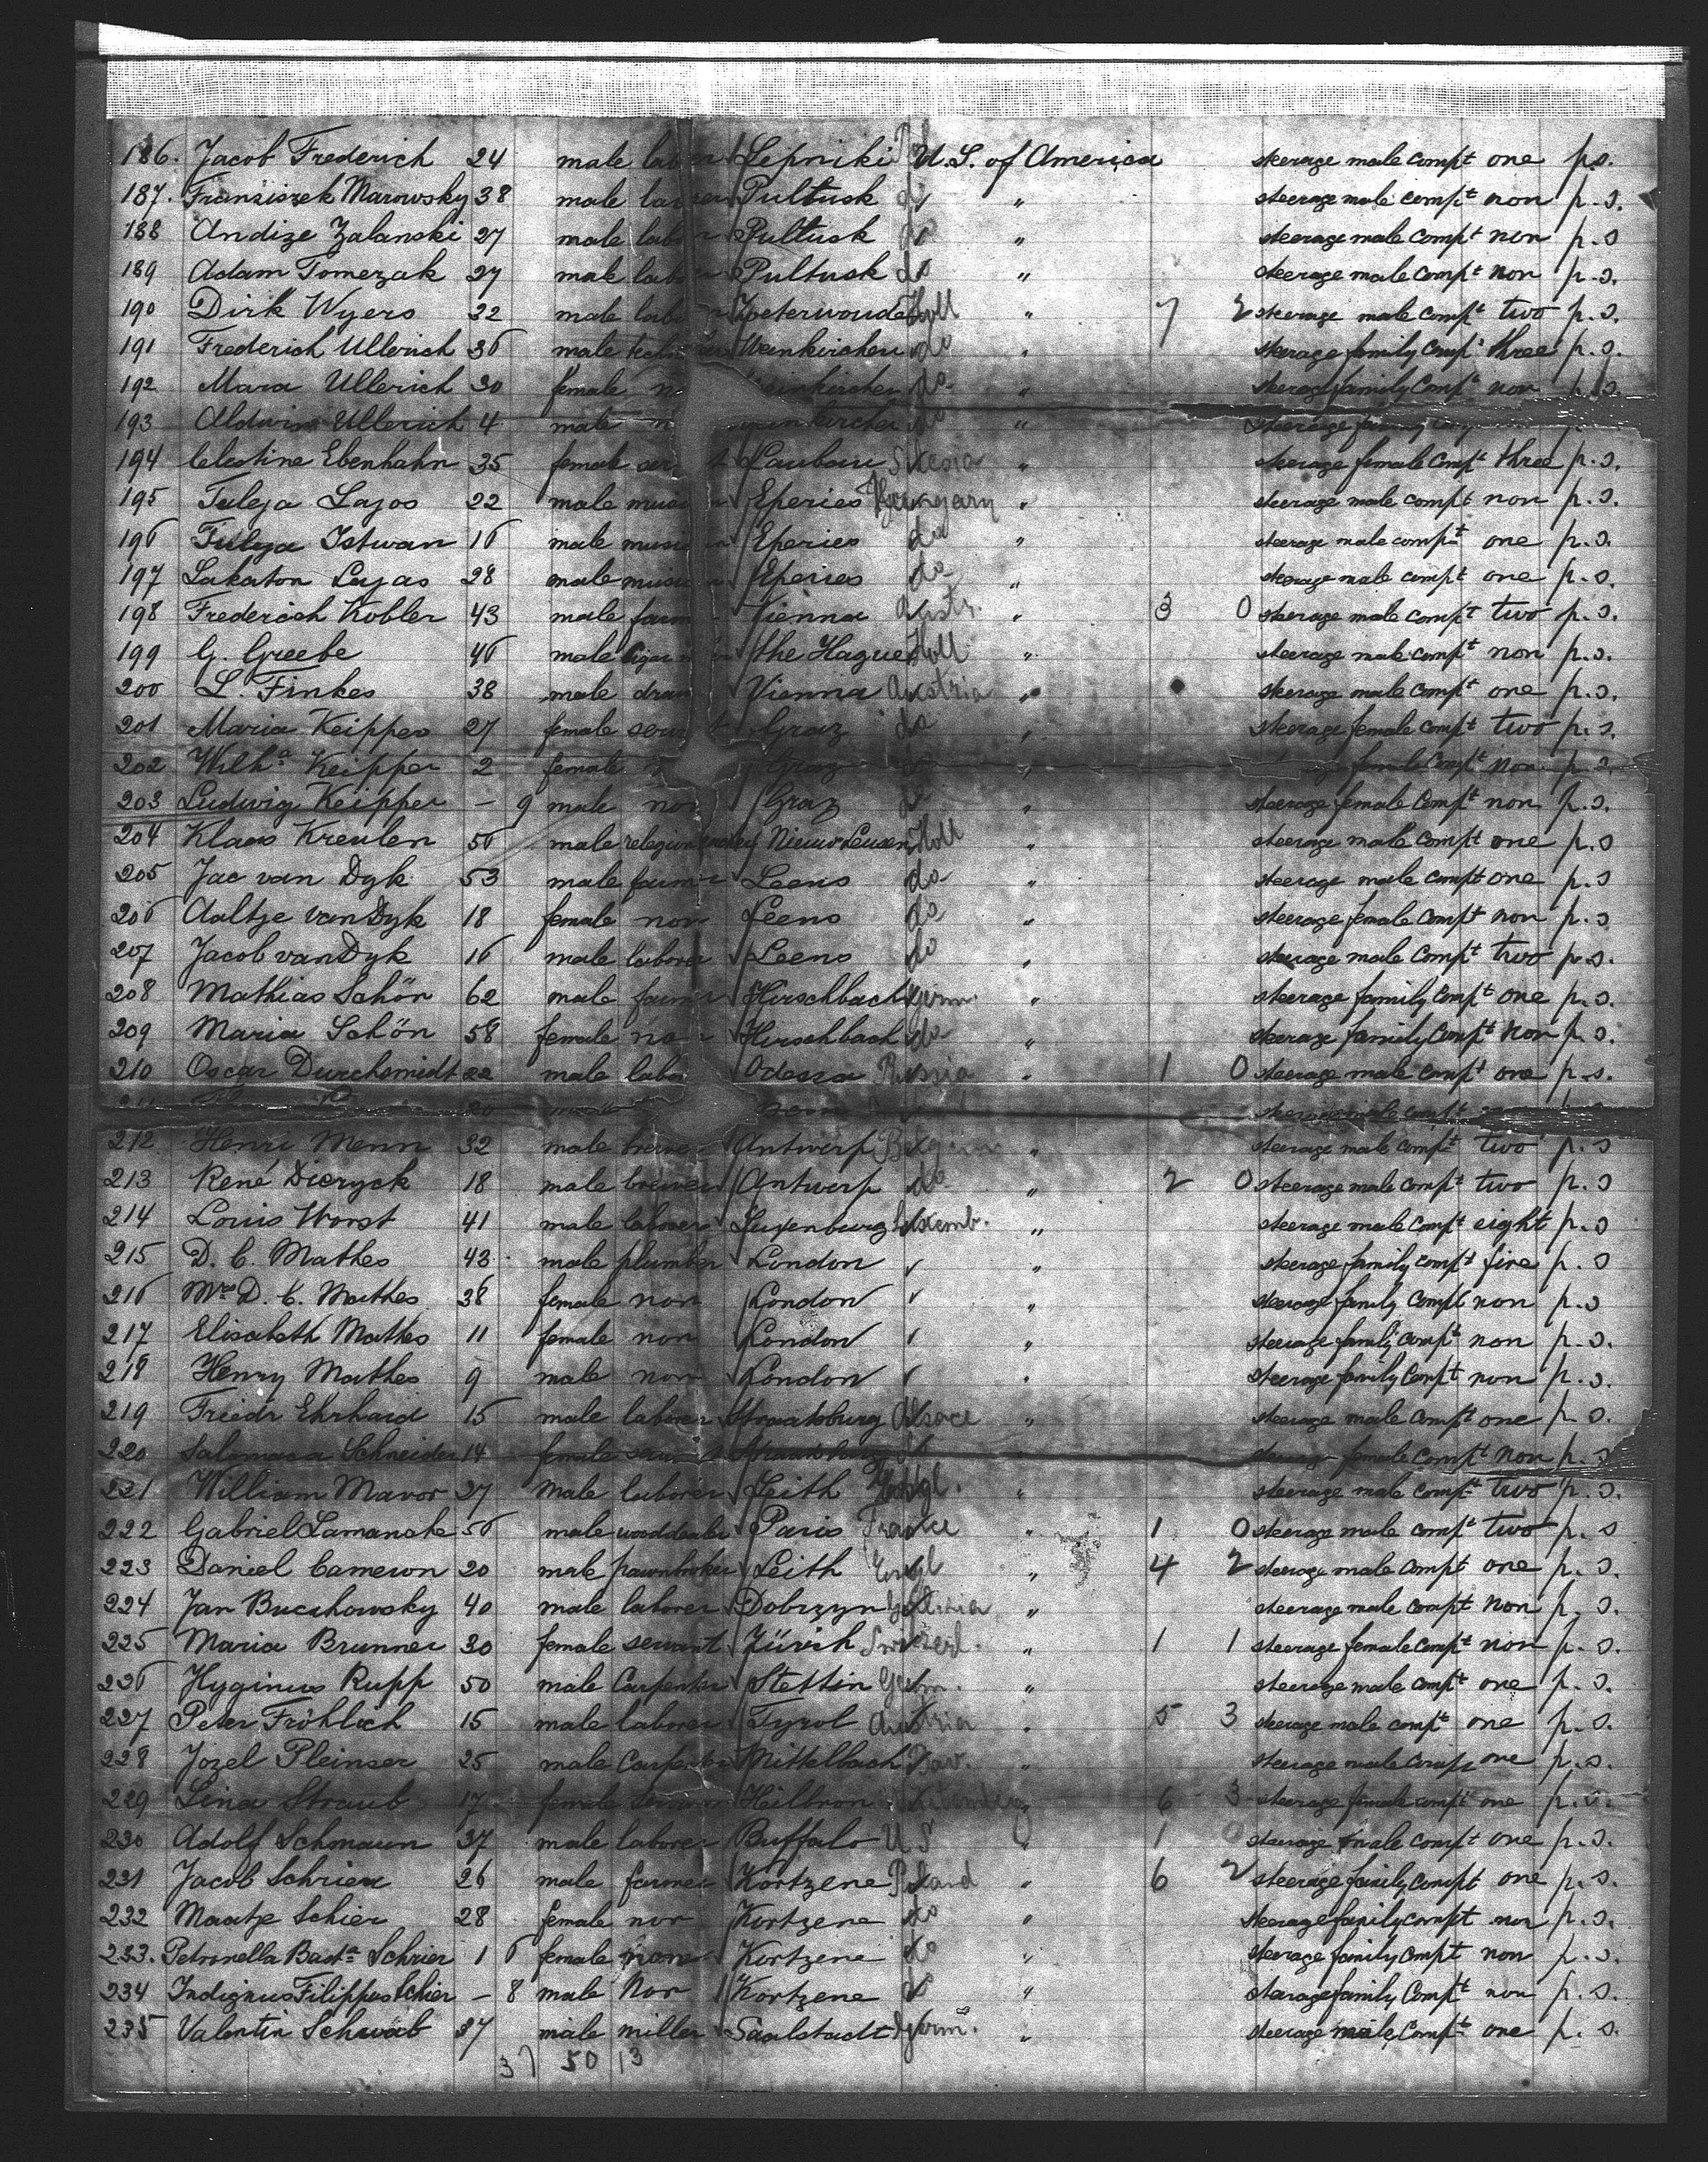 186. Jacob Frederich 24 male Lepniki U.S. of America steerage male compt one p.s.
187. Franziszek Marowsky 38 male Pultusk " steerage male compt non p.s.
188 Andize Zalanski 27 male Pultusk do " steerage male compt non p.s
189 Adam Tomezak 27 male Pultusk do " steerage male compt non p.s.
190 Dirk Wyers 32 male Zoeterwoude Holl " 7 2 steerage male compt two p.s.
191 Frederich Ullerich 36 male Weinkirchen do " steerage family compt three p.s.
192 Mara Ullerich 30 female do " steerage family compt non p.s.
193 Ullerich 4 male do " steerage family
194 Celestine Ebenhahn 35 female Lauban " steerage female compt three p.s.
195 Tuleja Lajos 22 male Eperies Hungary " steerage male compt non p.s.
196 Tuleja Istwan 16 male Eperies do " steerage male compt one p.s.
197 Lakaton Lajas 28 male Eperies do " steerage male compt one p.s.
198 Frederich Kobler 43 male Vienna Austr. " 3 0 steerage male compt two p.s.
199 G. Greebe 46 male the Hague Holl " steerage male compt non p.s.
200 L. Finkes 38 male Vienna Austria " steerage male compt one p.s.
201 Maria Keipper 27 female Graz do " steerage female compt two p.s.
202 Wilha Keipper 2 female Graz " female compt non p.s.
203 Ludwig Keipper - 9 male non Graz " steerage female compt non p.s.
204 Klaas Kreulen 56 male Nieuw Leusen Holl " steerage male compt one p.s
205 Jac van Dyk 53 male farmer Leens do " steerage male compt one p.s
206 Aaltje van Dyk 18 female non Leens do " steerage female compt non p.s
207 Jacob van Dyk 16 male laborer Leens do " steerage male compt two p.s.
208 Mathias Schön 62 male farmer Hirschbach Germ. " steerage family compt one p.s.
209 Maria Schön 58 female non Hirschbach do " steerage family compt non p.s.
210 Oscar Durchsmidt 22 male Odessa Russia " 1 0 steerage male compt one p.s.
steerage male compt
212 Henri Menn 32 male Antwerp Belgium " steerage male compt two p.s
213 René Dieryck 18 male brewer Antwerp do " 2 0 steerage male compt two p.s
214 Louis Worst 41 male laborer Luxenburg Luxemb. " steerage male compt eight p.s
215 D. C. Mathes 43 male plumber London " steerage family compt five p.s
216 Mrs D. C. Mathes 38 female non London " steerage family compt non p.s
217 Elisabeth Mathes 11 female non London " steerage family compt non p.s.
218 Henry Mathes 9 male non London " steerage family compt non p.s.
219 Friedr Ehrhard 15 male laborer Straatsburg Alsace " steerage male compt one p.s.
220 Schneider 14 female do steerage female compt non p.s
221 William Mavor 27 Male laborer Leith Engl. " steerage male compt two p.s.
222 Gabriel Lamanche 56 male wooddealer Paris France " 1 0 steerage male compt two p.s
223 Daniel Cameron 20 male pawnbroker Leith Engl " 4 2 steerage male compt one p.s.
224 Jan Buczkowsky 40 male laborer Dobrzyn " steerage male compt non p.s.
225 Maria Brunner 30 female servant Zürich Switzerl. " 1 1 steerage female compt non p.s.
226 Hyginus Rupp 50 male Carpenter Stettin Germ. " steerage male compt one p.s.
227 Peter Fröhlich 15 male laborer Tyrol Austria " 5 3 steerage male compt one p.s.
228 Jozel Pleinser 25 male Carpenter Mittelbach Bav. " steerage male compt one p.s.
229 Lina Straub 17 female Heilbron " 6 3 steerage female compt one p.s.
230 Adolf Schmaun 37 male laborer Buffalo U S " 1 0 steerage male compt one p.s.
231 Jacob Schrier 26 male farmer Kortzene " 6 2 steerage family compt one p.s.
232 Maatje Schier 28 female non Kortzene do " steerage family compt non p.s.
233. Petronella Basta Schrier 1 6 female none Kortzene do " steerage family compt non p.s.
234 Indignus Filippus Schier - 8 male Non Kortzene do " steerage family compt non p.s.
235 Valentin Schwab 37 male miller Saalstadt Germ. " steerage male compt one p.s.
37 50 13